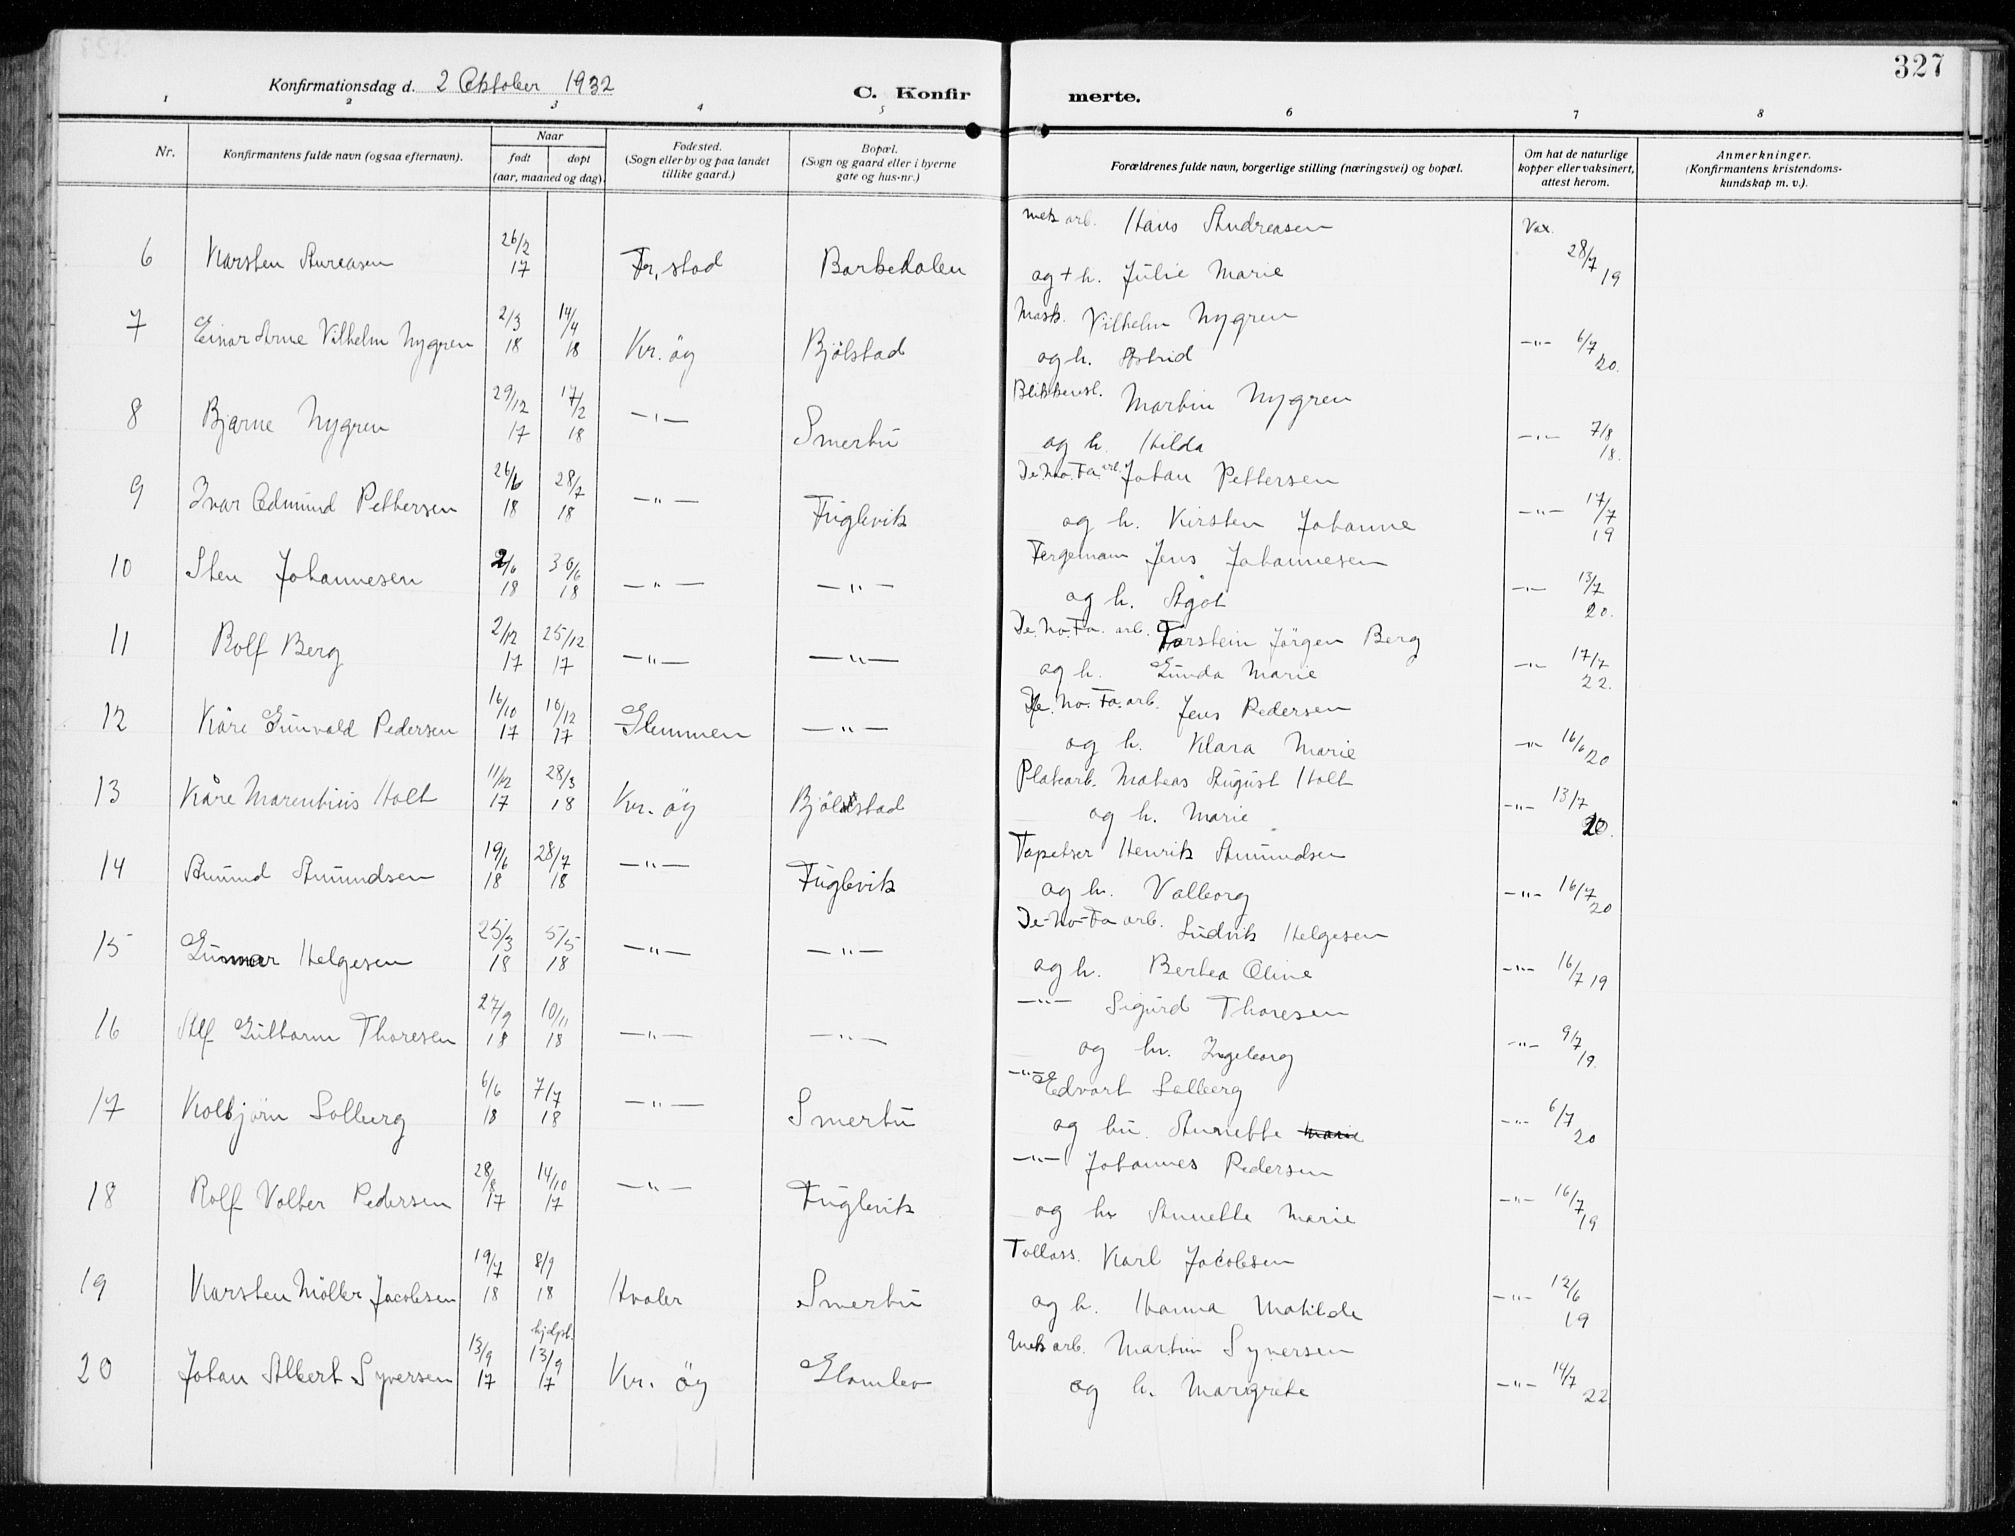 327
Konfirmationsdag d. 2 Oktober 1932
C. Konfir merte.
1 2 3 4 5 6 7 8
Nr. Konfirmantens fulde navn (ogsaa efternavn). Naar født døpt (aar, maaned og dag). Fødested. (Sogn eller by og paa landet tillike gaard.) Bopæl. (Sogn og gaard eller i byerne gate og hus-nr.) Forældrenes fulde navn, borgerlige stilling (næringsvei) og bopæl. Om hat de naturlige kopper eller vaksinert, attest herom. Anmerkninger. (Konfirmantens kristendoms-kundskap m. v.).
mek arb. Hans Andreasen Vax.
6 Karsten Anreasen 26/2 17 Fr.stad Barbedalen og + h. Julie Marie 28/7 19
Mask. Vilhelm Nygren
7 Einar Arne Vilhelm Nygren 2/3 18 14/4 18 Kr. öy Bjölstad og h. Astrid -"- 6/7 20.
Blikkensl. Martin Nygren
8 Bjarne Nygren 29/12 17 17/2 18 -"- Smertu og h. Hilda -"- 7/8 18.
De-No-Fa. arb. Johan Pettersen
9 Ivar Edmund Pettersen 26/6 18 28/7 18 -"- Fuglevik og h. Kirsten Johanne -"- 17/7 19
Fergemann Jens Johannesen
10 Sten Johannesen 2/6 18 30/6 18 -"- -"- og h. Ågot -"- 13/7 20.
De.No.Fa. arb. Torstein Jörgen Berg
11 Rolf Berg 2/12 17 25/12 17 -"- -"- og h. Gunda Marie -"- 17/7 22.
De.No.Fa.arb. Jens Pedersen
12 Kåre Gunvald Pedersen 16/10 17 16/12 17 Glemmen -"- og h. Klara Marie -"- 16/6 20
Platearb. Mateas August Holt
13 Kåre Marentius Holt 11/12 17 28/3 18 Kr. öy Bjölstad og h. Marie -"- 13/7 20.
Tapetser Henrik Amundsen
14 Amund Amundsen 19/6 18 28/7 18 -"- Fuglevik og h. Valborg -"- 16/7 20
De-No-Fa arb. Ludvik Helgesen
15 Gunnar Helgesen 25/3 18 5/5 18 -"- -"- og h. Bertea Oline -"- 16/7 19
-"- Sigurd Thoresen
16 Alf Guttorm Thoresen 27/9 18 10/11 18 -"- -"- og h. Ingeborg -"- 9/7 19.
-"- Edvart Solberg
17 Kolbjörn Solberg 6/6 18 7/7 18 -"- Smertu og hu. Annette Marie -"- 6/7 20
-"- Johannes Pedersen
18 Rolf Volter Pedersen 28/8 17 14/10 17 -"- Fuglevik og h. Annette Marie -"- 16/7 19
Tollass. Karl Jacobsen
19 Karsten Möller Jacobsen 19/7 18 8/9 18 Hvaler Smertu og h. Hanna Matilde -"- 12/6 19
hjdpt. Mek arb. Martin Syversen
20 Johan Albert Syversen 13/9 17 13/9 17 Kr. öy Glomlev og h. Margrete -"- 14/7 22